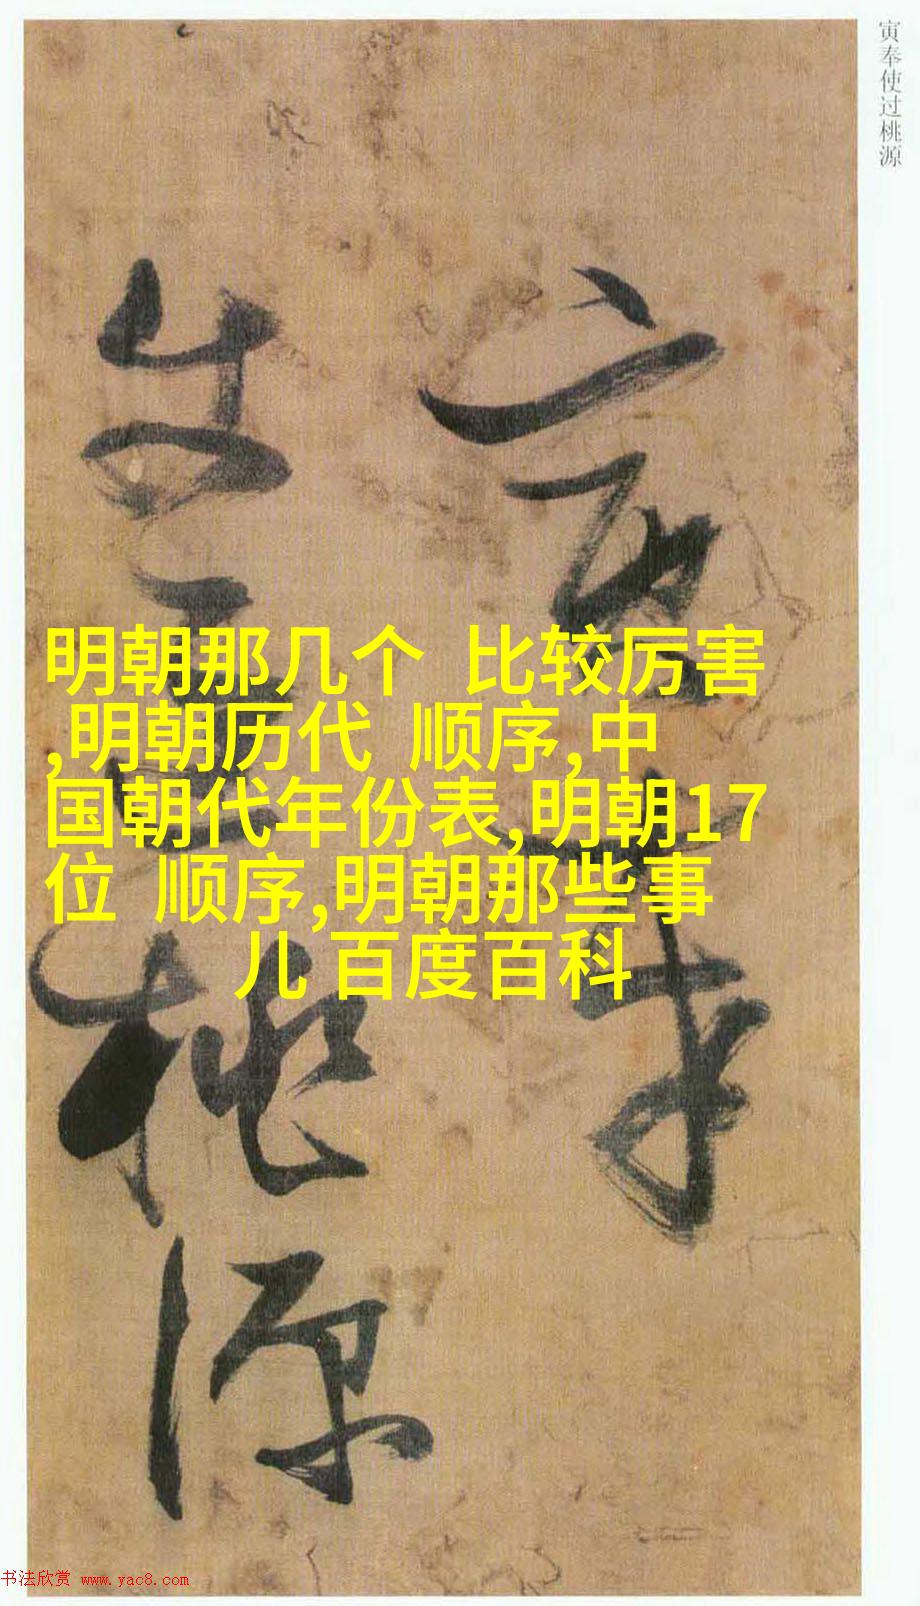 寅奉使过桃源
寅奉
使过桃源
明朝那几个 比较厉害
,明朝历代 顺序,中
国朝代年份表,明朝17
位 顺序,明朝那些事
儿 百度百科
书法欣赏 www.yac8.com